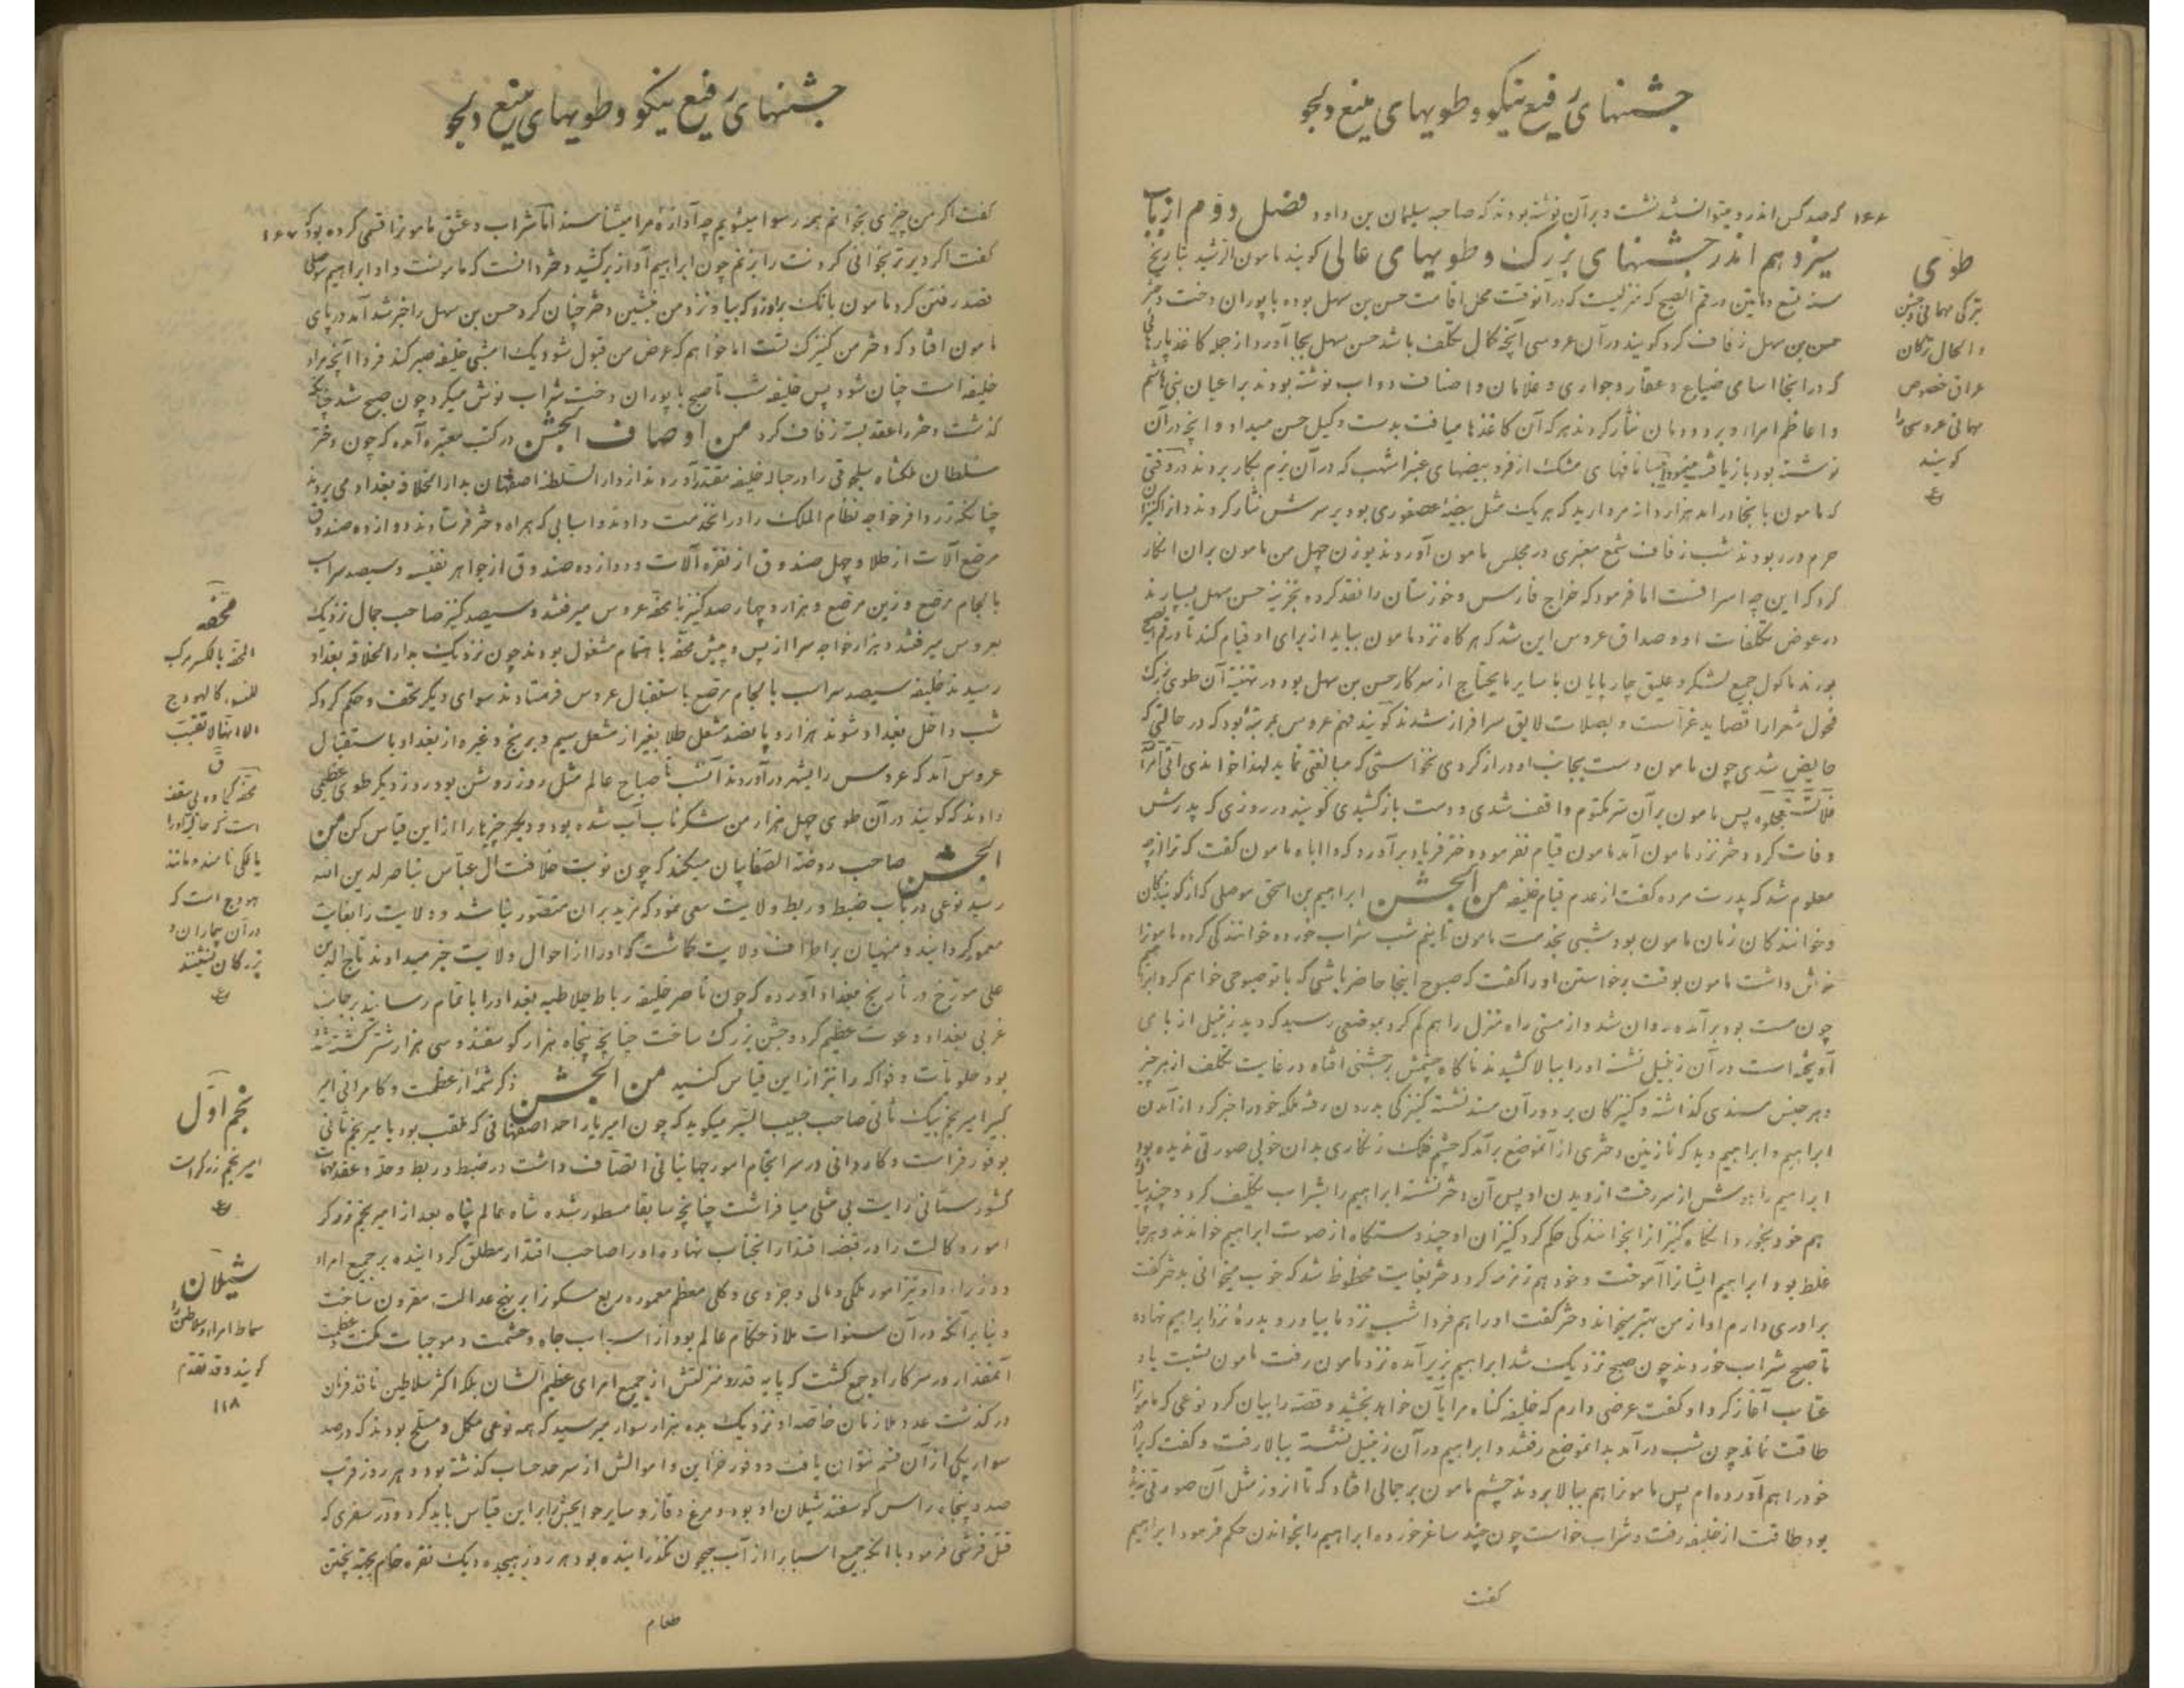 جشنهای رفیع نیکو و طویهای منیع دلجو
۱۶۶ که صد کس اندرو میتوانستند نشست و بر آن نوشته بودند که صاحبه سلیمان بن داود فصل دوم از باب
سیزدهم اندر جشنهای بزرک و طویهای عالی کویند مامون الرشید بتاریخ
حسن بن سهل زفاف کرد کویند در آن عروسی آنچه کمال تکلف باشد حسن سهل بجا آورد از جمله کاغذ پارها
که در انجا اسامی ضیاع و عقار و جواری و غلامان و اصناف دواب نوشته بودند بر اعیان بنی هاشم
و اعاظم امراء نثار کردند هر که آن کاغذها میافت بدست وکیل حسن میداد و آنچه در آن
که مامون بانجا در امد هزار دانه مروارید که هر یک مثل بیضهٔ عصفوری بود بر سرش نثار کردند
حرم در بودند شب زفاف شمع عنبری در مجلس مامون آوردند بوزن چهل من مامون بر ان انکار
کرد که این چه اسرافست اما فرمود که خراج فارس و خوزستان را نقد کرده بخزینه حسن سهل بسپارند
در عوض تکلفات او و صداق عروس این شد که هر کاه نزد مامون بیاید از برای او قیام کند
بودند ماکول جمیع لشکر و علیق چارپایان با سایر مایحتاج از سرکار حسن بن سهل بود در تهنیه آن طوی بزرک
فحول شعرا را قصاید غراست و بصلات لایق سرافراز شدند کویند فهم عروس بمرتبهٔ بود که در حالتی که
حایض شدی چون مامون دست بجانب او دراز کردی نخواستی که مبالغتی نماید لهذا خواندی اتی امر الله
فلا تستعجلوه پس مامون بر آن سر مکتوم واقف شدی و دست باز کشیدی کویند در روزی که پدرش
وفات کرد دختر نزد مامون آمد مامون قیام نفرموده دختر فریاد بر آورد که وا اباه مامون کفت که ترا از چه
معلوم شد که پدرت مرده کفت از عدم قیام خلیفه من الجشن ابراهیم بن اسحق موصلی که از کویندکان
و خوانندکان زمان مامون بود شبی بخدمت مامون تا نیم شب شراب خورده خوانندکی کرده مامون را
خوش داشت مامون بوقت برخاستن او را کفت که صبوح اینجا حاضر باشی که با تو صبوحی خواهم کرد
چون مست بود بر آمده روان شد و از مستی راه منزل را هم کم کرد بموضعی رسید که دید زنبیل از بامی
آویخته است در آن زنبیل نشسته او را ببالا کشیدند ناکاه چشمش بر جشنی افتاد در غایت تکلف از هر چیز
و هر جنس مسندی کذاشته و کنیزکان بر دور آن مسند نشسته کنیزکی بدرون رفته ملکه خود را خبر کرد از آمدن
ابراهیم و ابراهیم دید که نازنین دختری از آنموضع برآمد که چشم فلک زنکاری بدان خوبی صورتی ندیده بود
ابراهیم را هوش از سر رفت از دیدن او پس آن دختر نشسته ابراهیم را بشراب تکلیف کرد
هم خود بخورد و انکاه کنیزانرا بخوانندکی حکم کرد کنیزان او چند دستکاه از صوت ابراهیم خواندند و هر جا
غلط بود ابراهیم ایشانرا آموخت و خود هم زمزمه کرد دختر بغایت محظوظ شد که خوب میخوانی بدختر کفت
برادری دارم او از من بهتر میخواند دختر کفت او را هم فردا شب نزد ما بیاور و بدرهٔ نزد ابراهیم نهاده
تا صبح شراب خوردند چون صبح نزدیک شد ابراهیم بزیر آمده نزد مامون رفت مامون نسبت باو
عتاب آغاز کرد او کفت عرضی دارم که خلیفه کناه مرا بآن خواهد بخشید و قصه را بیان کرد نوعی که مامون را
طاقت نماند چون شب در آمد بدانموضع رفتند و ابراهیم در آن زنبیل نشسته ببالا رفت و کفت که برادر
خود را هم آورده‌ام پس مامونرا هم ببالا بردند چشم مامون بر جمالی افتاد که تا انروز مثل آن صورتی ندیده
بود طاقت از خلیفه رفت و شراب خواست چون چند ساغر خورده ابراهیم را بخواندن حکم فرمود ابراهیم
کفت
طوی
بترکی مهمانی و جشن
و الحال ترکان
عراق خصوص
مهمانی عروسی را
کویند
جشنهای رفیع نیکو و طویهای منیع دلجو
کفت اکر من چیزی بخوانم همه رسوا میشویم چه آوازهٔ مرا میشناسند اما شراب و عشق مامونرا قسمی کرده بود که ۱۶۷
کفت اکر دیرتر بخوانی کردنت را بزنم چون ابراهیم آواز برکشید دختر دانست که مامونست و او ابراهیم موصلی
قصد رفتن کرد مامون بانک بر او زد که بیا و نزد من بنشین دختر چنان کرد حسن بن سهل را خبر شد آمد در پای
مامون افتاد که دختر من کنیزک تست اما خواهم که عرض من قبول شود یک امشبی خلیفه صبر کند فردا آنچه مراد
خلیفه است چنان شود پس خلیفه شب تا صبح با پوران دخت شراب نوش میکرد چون صبح شد چنانکه
کذشت دختر را عقد بسته زفاف کرد من اوصاف الجشن در کتب معتبره آمده که چون دختر
سلطان ملکشاه سلجوقی را در حباله خلیفه مقتدر آوردند از دار السلطنه اصفهان بدار الخلافه بغداد می بردند
چنانکه زر وافر خواجه نظام الملک را در انخدمت دادند و اسبابی که همراه دختر فرستادند دوازده صندوق
مرصع آلات از طلا و چهل صندوق از نقره آلات و دوازده صندوق از جواهر نفیسه و سیصد سر اسب
با لجام مرصع و زین مرصع و هزار و چهار صد کنیز با محفه عروس میرفتند و سیصد کنیز صاحب جمال نزدیک
بعروس میرفتند و هزار خواجه سرا از پس و پیش محفه باهتمام مشغول بودند چون نزدیک بدار الخلافه بغداد
رسیدند خلیفه سیصد سر اسب با لجام مرصع باستقبال عروس فرستادند سوای دیکر تحف و حکم کرد که
شب داخل بغداد شوند هزار و پانصد مشعل طلا بغیر از مشعل سیم و برنج و غیره از بغداد باستقبال
عروس آمد که عروس را بشهر در آوردند آنشب تا صباح عالم مثل روز روشن بود روز دیکر طوی عظیمی
دادند که کویند در آن طوی چهل هزار من شکر ناب آب شده بود و دیکر چیزها را از این قیاس کن من
الجشن صاحب روضة الصفا بیان میکند که چون نوبت خلافت آل عباس بناصر لدین الله
رسید نوعی در باب ضبط و ربط ولایت سعی نمود که مزید بر ان متصور نباشد و ولایت را بغایت
معمور کردانید و منهیان بر اطراف ولایت کماشت که او را از احوال ولایت خبر میدادند تاج الدین
علی مورخ در تاریخ بغداد آورده که چون ناصر خلیفه رباط خلاطیه بغداد را باتمام رسانید بر جانب
غربی بغداد دعوت عظیم کرد و جشن بزرک ساخت چنانچه پنجاه هزار کوسفند و سی هزار کشته شده
بود حلویات و فواکه را نیز از این قیاس کنید من الجشن ذکر شمهٔ از عظمت و کامرانی امیر
کبیر امیر نجم بیک ثانی صاحب حبیب السیر میکوید که چون امیر یار احمد اصفهانی که ملقب بود بامیر نجم ثانی
بوفور فراست و کاردانی و سرانجام امور جهانبانی اتصاف داشت در ضبط و ربط و حل و عقد مهمات
کشورستانی رایت بی مثلی میافراشت چنانچه سابقا مسطور شده شاه عالم پناه بعد از امیر نجم زرکر
امور وکالت را در قبضه اقتدار انجناب نهاده او را صاحب اقتدار مطلق کردانیده بر جمیع امراء
و بنابر آنکه در آن سنوات ملاذ حکام عالم بود از اسباب جاه و حشمت و موجبات مکنت و عظمت
آنمقدار در سرکار او جمع کشت که پایه قدر و منزلتش از جمیع امرای عظیم الشان بلکه اکثر سلاطین نافذ فرمان
در کذشت عدد ملازمان خاصه او نزدیک بده هزار سوار میرسید که همه نوعی مکمل و مسلح بودند که در صد
سوار یکی از آن قسم نتوان یافت و وفور خزاین و اموالش از سر حد حساب کذشته بود و هر روز قریب
صد و پنجاه راس کوسفند شیلان او بود و مرغ و قاز و سایر حوایجش را بر این قیاس باید کرد و در سفری که
قتل قرشی فرمود با آنکه جمیع اسبابرا از آب جیحون نکذرانیده بود هر روز هیجده دیک نقره جام بجهة پختن
طعام
محفه
المحفه بالکسر مرکب
للنساء کالهودج
الا انها لا تقبب
ق
یا ملکی نامند و مانند
هودج است که
در آن بیماران و
بزرکان نشینند
نجم اول
امیر نجم زرکر است
شیلان
سماط امراء و سلاطین را
کویند و قد تقدم
۱۱۸